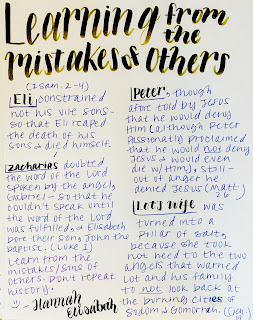 Learning from the
mistakes of others
(1 Sam. 2-4)
Eli constrained
not his vile sons-
so that Eli reaped
the death of his
sons & died himself.
Zacharias doubted
the word of the Lord
spoken by the angel,
Gabriel - so that he
couldn't speak until
the word of the Lord
was fulfilled, & Elisabeth
bore their son, John the
baptist. (Luke 1)
Learn from the
mistakes/sins of
others. Don't repeat
history.
:) -Hannah
Elisabeth
Peter, though
afore told by Jesus
that he would deny
Him (although Peter
passionately proclaimed
that he would not deny
Jesus & would even
die w/ Him), still -
out of anger he
denied Jesus (Matt
26)
Lot's wife was
turned into a
pillar of salt,
because she took
not heed to the two
angels that warned
Lot and his family
to not look back at
the burning cities of
Sodom & Gomorrah. (Gen.
19)